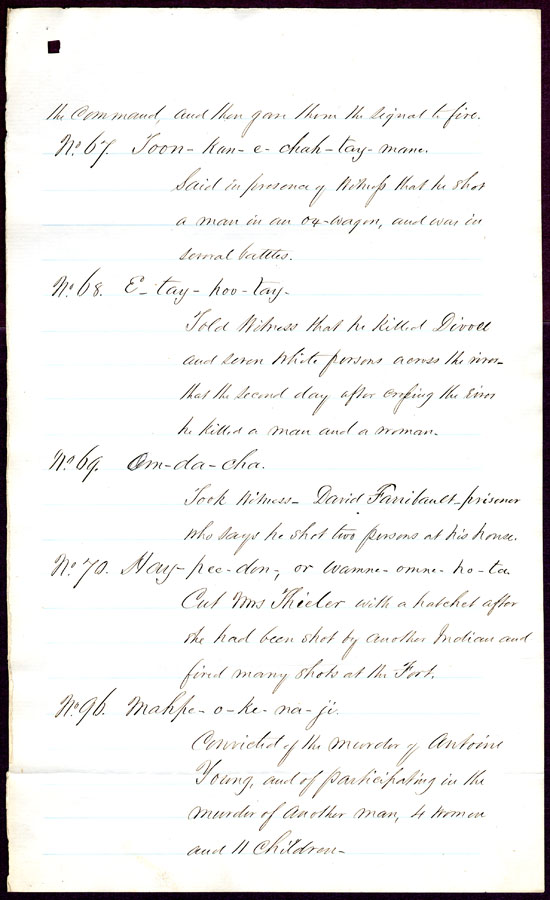 the command, and then gave them the signal to fire.
No. 67. Toon-kan-e-chah-tay-mane.
Said in presence of Witness that he shot
a man in an ox-wagon, and was in
several battles.
No. 68. E-tay-hoo-tay.
Told Witness that he killed Divoll
and seven White persons across the river–
that the second day after crossing the river
he killed a man and a woman.
No. 69. Am-da-cha.
Took Witness– David Farribault–prisoner
who says he shot two persons at his house.
No. 70. Hay-pee-don, or Wamne-omne-ho-ta.
Cut Mrs Thieler with a hatchet after
she had been shot by another Indian and
fired many shots at the Fort.
No. 96. Mahpe-o-ke-na-ji.
Convicted of the murder of Antoine
Young, and of participating in the
murder of another man, 4 women
and 11 children–